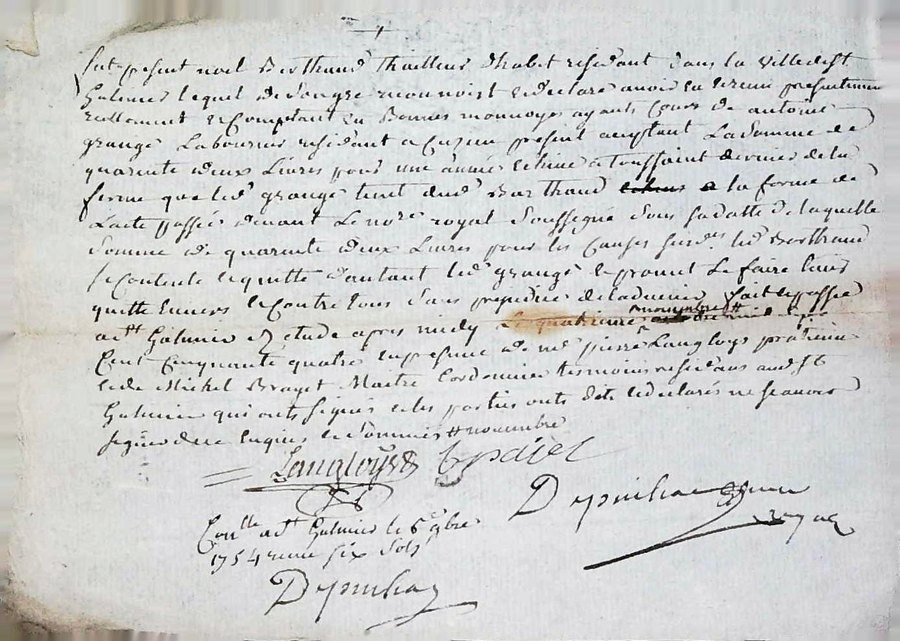 fut present noel Berthaud thailleur d'habit residant dans la ville de St
Galmier lequel de son gre reconnoist et declare avoir eu et receu presentement
reellement et comptant en bonnes monnoyes ayants cours de antoine
grange laboureur residant a present acceptant la somme de
quarante deux livres pour une année echue a toussaint dernier de la
ferme que led grange tient dud Berthaud a la forme de
l'acte passée devant le nore royal soussigné sous sa datte de laquelle
somme de quarante deux livres pour les causes susd led Berthaud
se contente et quitte d'autant led grange et promet le faire tenir
quitte envers et contre tous sans prejudice de l'advenir fait et passé
a St Galmier etude apres midy le quatrieme novembre mil sept
cent cinquante quatre en presence de me pierre Langloys praticien
et de Michel Brayet Maitre cordonnier temoins residans aud St
Galmier qui ont signés et les parties ont dit et declarés ne scavoir
signer de ce enquis et sommés # novembre
Langloys
Depuihac nore
royal
Conlle a St Galmier le 6e 9bre
1754 receu six sols
Depuihac